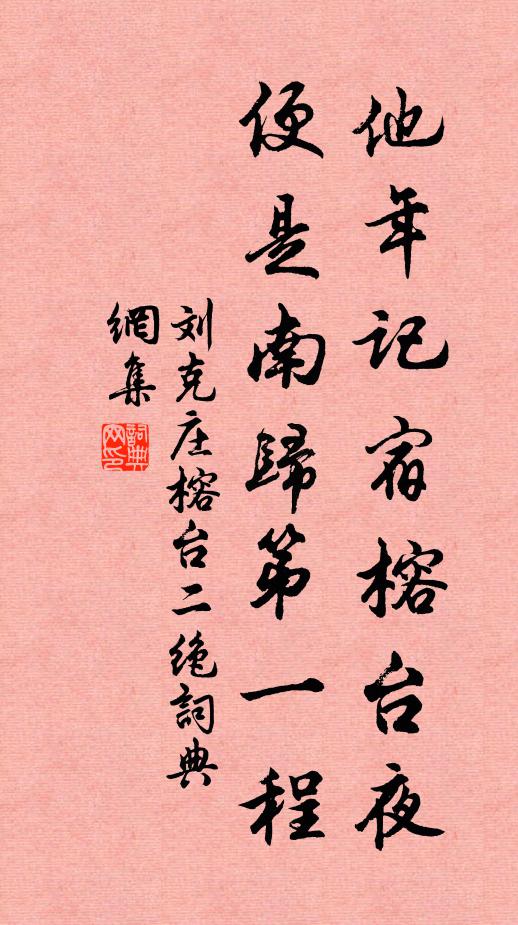 他年记宿榕台夜
便是南歸第一程
刘克庄榕台二绝詞典
網集
詞典网印